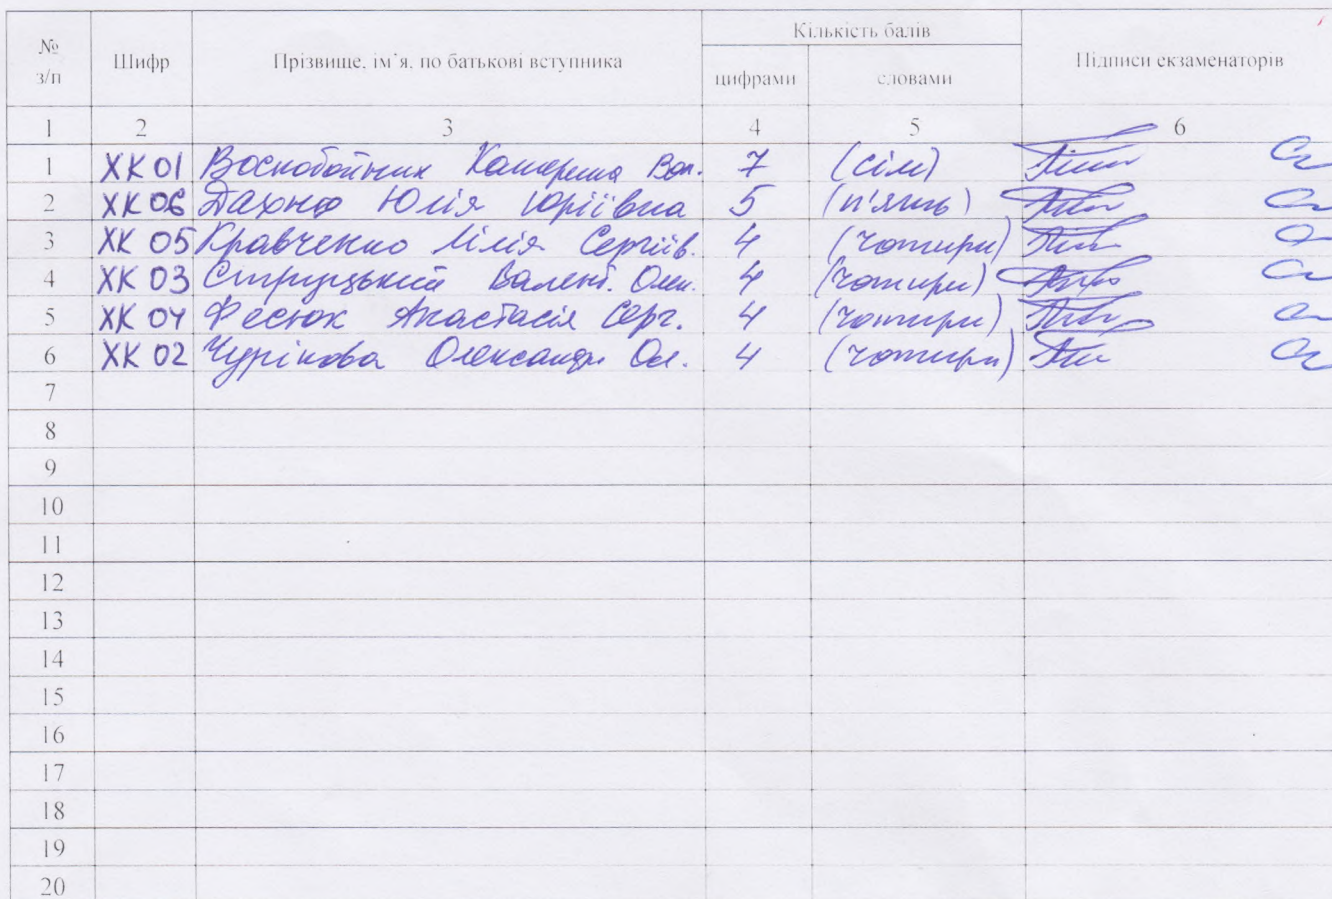 № з/п Шифр Прізвище, ім’я, по батькові вступника Кількість балів Підписи екзаменаторів
цифрами словами
1 2 3 4 5 6
1 ХК 01 Воскобойник Катерина Вол. 7 (сім)
2 ХК 06 Дахно Юлія Юріївна 5 (п'ять)
3 ХК 05 Кравченко Лілія Сергіїв. 4 (чотири)
4 ХК 03 Струцький Валент. Олек. 4 (чотири)
5 ХК 04 Фесюк Анастасія Серг. 4 (чотири)
6 ХК 02 Чурікова Олександр. Ол. 4 (чотири)
7
8
9
10
11
12
13
14
15
16
17
18
19
20